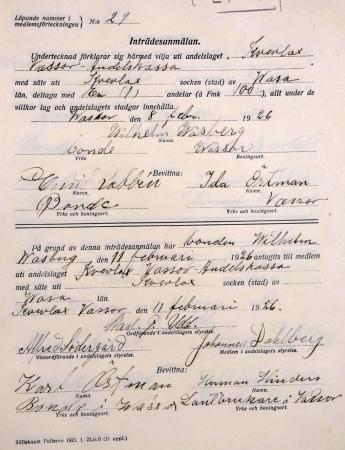 Löpande nummer i
medlemsförteckningen } N:o 29
Inträdesanmälan.
Undertecknad förklarar sig härmed vilja uti andelslaget. Kvevlax
Vassor Andelskassa
med säte uti Kvevlax socken (stad) av Wasa
län, deltaga med En (1) andelar (à Fmk 100), allt under de
villkor lag och andelslagets stadgar innehålla.
Wassor den 8 febr. 1926
Wilhelm Wasberg
Namn.
bonde Wassor
Yrke Boningsort.
Bevittna:
Emil Ida Östman
Namn. Namn.
Bonde Vassor
Yrke och boningsort. Yrke och boningsort.
På grund av denna inträdesanmälan har bonden Wilhelm
Wasberg den 11 februari 1926 antagits till medlem
uti andelslaget Kvevlax Vassor Andelskassa
med säte uti Kvevlax socken (stad) av
Wasa län.
Kvevlax Vassor den 11 februari 1926.
Ordförande i andelslagets styrelse.
Alfred Södergård Johannes Dahlberg
Viceordförande i andelslagets styrelse. Medlem i andelslagets styrelse.
Bevittna:
Karl Östman Herman Hinders
Namn. Namn.
Bonde i Vassor Lantbrukare i Vassor
Yrke och boningsort. Yrke och boningsort.
Sällskapet Pellervo 1925. I. 25,0.0 (11 uppl.)